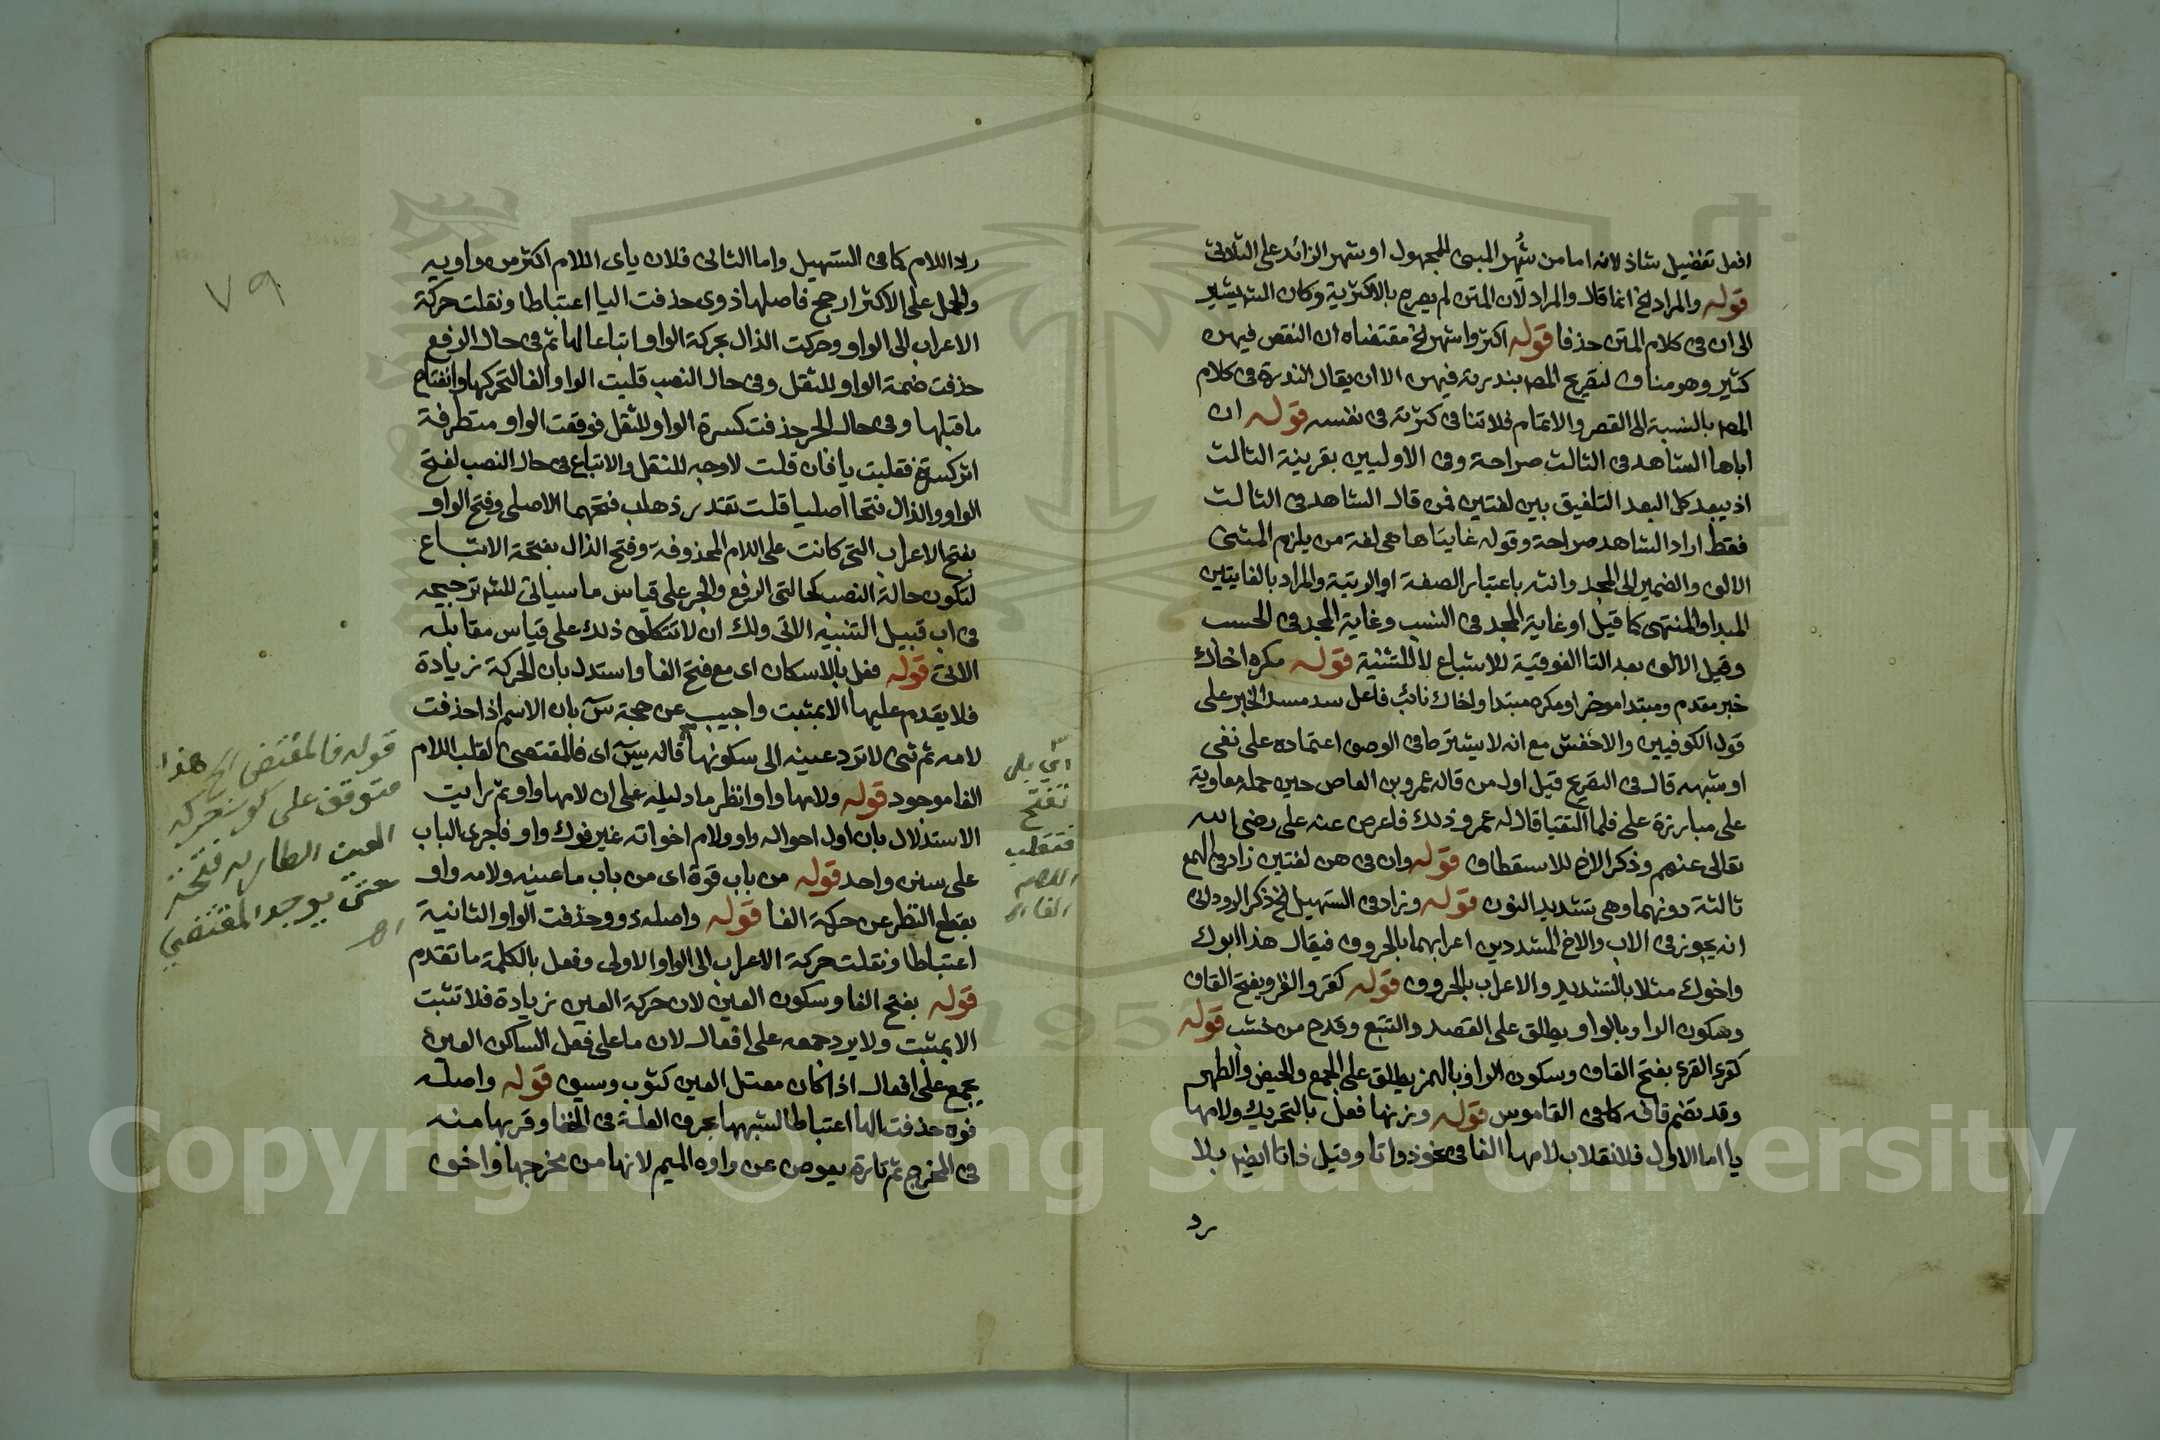 افعل تفضيل شاذ لانه اما من شُهر المبنى للمجهول او شهر الزائد على الثلاثى
قوله والمراد الخ انما قال والمراد لان المتن لم يصرح بالاكثرية وكان الش يشير
الى ان فى كلام المتن حذفا قوله اكثر واشهر الخ مقتضاه ان النقص فيهن
كثير وهو مناف لتصريح المصـ بندرته فيهن الا ان يقال الندرة فى كلام
المصـ بالنسبة الى القصر والاتمام فلا تنافى كثرته فى نفسه قوله ان
اباها الشاهد فى الثالث صراحة وفى الاوليين بقرينة الثالث
اذ يبعد كل البعد التلفيق بين لغتين فمن قال الشاهد فى الثالث
فقط اراد الشاهد صراحة وقوله غايتاها هى لغة من يلزم المثنى
الالف والضمير الى المجد وانثه باعتبار الصفة او الرتبة والمراد بالغايتين
المبدا والمنتهى كما قيل او غاية المجد فى النسب وغاية المجد فى الحسب
وقيل الالف بعد التا الفوقية للاشباع لا للتثنية قوله مكره اخاك
خبر مقدم ومبتدا موخر او مكره مبتدا واخاك نائب فاعل سد مسد الخبر على
قول الكوفيين والاخفش مع انه لا يشترطا فى الوصف اعتماده على نفى
او شبهه قال فى التصريح قيل اول من قاله عمرو بن العاص حين حمله معاوية
على مبارزة على فلما التقيا قال له عمرو ذلك فاعرض عنه على رضى الله
تعالى عنهم وذكر الاخ للاستعطاف قوله وان فى هن لغتين زاد فى الهمع
ثالثة دونهما وهى تشديد النون قوله وزاد فى التسهيل الخ ذكر الرودانى
انه يجوز فى الاب والاخ المشددين اعرابهما بالحروف فيقال هذا ابوك
واخوك مثلا بالتشديد والاعراب بالحروف قوله كقرو القرو بفتح القاف
وسكون الرا وبالواو يطلق على القصد والتتبع وقدح من خشب قوله
كقرء القرء بفتح القاف وسكون الرا وبالهمز يطلق على الجمع والحيض والطهر
وقد تضم قافه كما فى القاموس قوله وزنها فعل بالتحريك ولامها
يا اما الاول فلانقلاب لامها الفا فى نحو ذواتا وقيل ذاتا ايضا بلا
رد
٧٩
رد اللام كما فى التسهيل واما الثانى فلان ياى اللام اكثر من واويه
والحمل على الاكثر ارجح فاصلها ذوى حذفت اليا اعتباطا ونقلت حركة
الاعراب الى الواو وحركت الذال بحركة الواو اتباعا لها ثم فى حال الرفع
حذفت ضمة الواو للثقل وفى حال النصب قلبت الواو الفا لتحركها وانفتاح
ما قبلها وفى حال الجر حذفت كسرة الواو للثقل فوقعت الواو متطرفة
اثر كسرة فقلبت يا فان قلت لا وجه للنقل والاتباع فى حال النصب لفتح
الواو والذال فتحا اصليا قلت تقدر ذهاب فتحهما الاصلى وفتح الواو
بفتح الاعراب التى كانت على اللام المحذوفة وفتح الذال بفتحة الاتباع
لتكون حالة النصب كحالتى الرفع والجر على قياس ما سياتى للش ترجيحه
فى اب قبيل التنبيه الاتى ولك ان لا تتكلف ذلك على قياس مقابله
الاتى قوله فعل بالاسكان اى مع فتح الفا واستدل بان الحركة زيادة
فلا يقدم عليها الا بمثبت واجيب عن حجة س بان الاسم اذا حذفت
لامه ثم ثنى لا ترد عينه الى سكونها قاله يس اى فالمقتضى لقلب اللام
الفا موجود قوله ولامها واو انظر ما دليله على ان لامها واو ثم رايت
الاستدلال بان اول احواله واو ولام اخواته غير فوك واو فاجرى الباب
على سنن واحد قوله من باب قوة اى من باب ما عينه ولامه واو
بقطع النظر عن حركة الفا قوله واصله ذوو حذفت الواو الثانية
اعتباطا ونقلت حركة الاعراب الى الواو الاولى وفعل بالكلمة ما تقدم
قوله بفتح الفا وسكون العين لان حركة العين زيادة فلا تثبت
الا بمثبت ولا يرد جمعه على افعال لان ما على فعل الساكن العين
يجمع على افعال اذا كان معتل العين كثوب وسيف قوله واصله
فوه حذفت الها اعتباطا لشبهها بحرف العلة فى الخفا وقربها منه
فى المخرج ثم تارة يعوض عن واوه الميم لانها من مخرجها واخف
اى بل
تفتح
فتقلب
اللام
الفا اه
قوله فالمقتضى الخ هذا
متوقف على كون حركة
العين الطارية فتحة
حتى يوجد المقتضى
اه
Copyright © King Saud University
1957